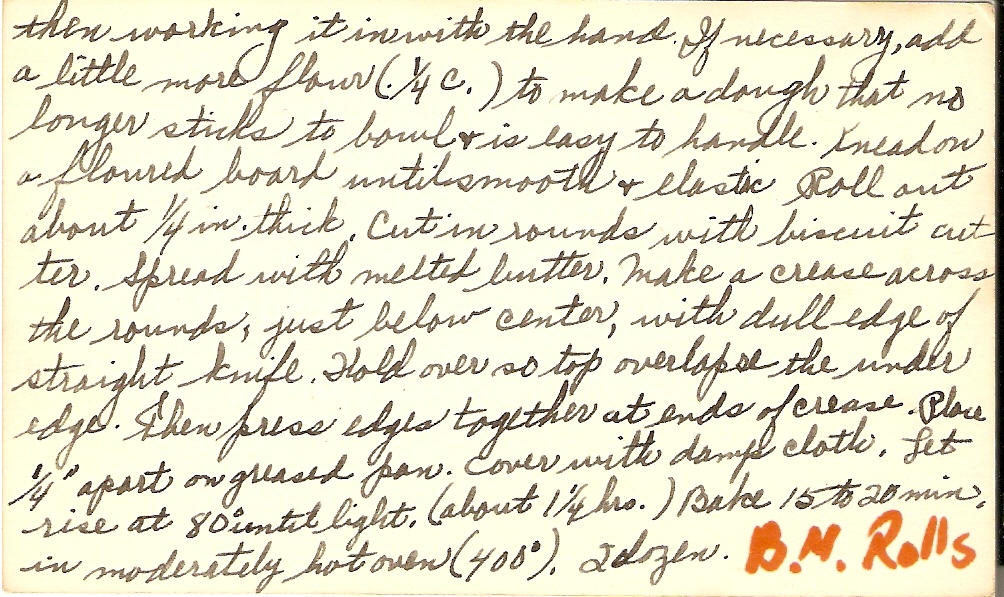 then working it in with the hand. If necessary, add
a little more flour (¼ c.) to make a dough that no
longer sticks to bowl & is easy to handle. Knead on
a floured board until smooth & elastic Roll out
about ¼ in. thick. Cut in rounds with biscuit cut
ter. Spread with melted butter. Make a crease across
the rounds, just below center, with dull edge of
straight knife. Fold over so top overlapse the under
edge. Then press edges together at ends of crease. Place
¼" apart on greased pan. Cover with damp cloth. Let
rise at 80° until light. (about 1¼ hrs.) Bake 15 to 20 min.
in moderately hot oven (400°). 2 dozen. B.M. Rolls